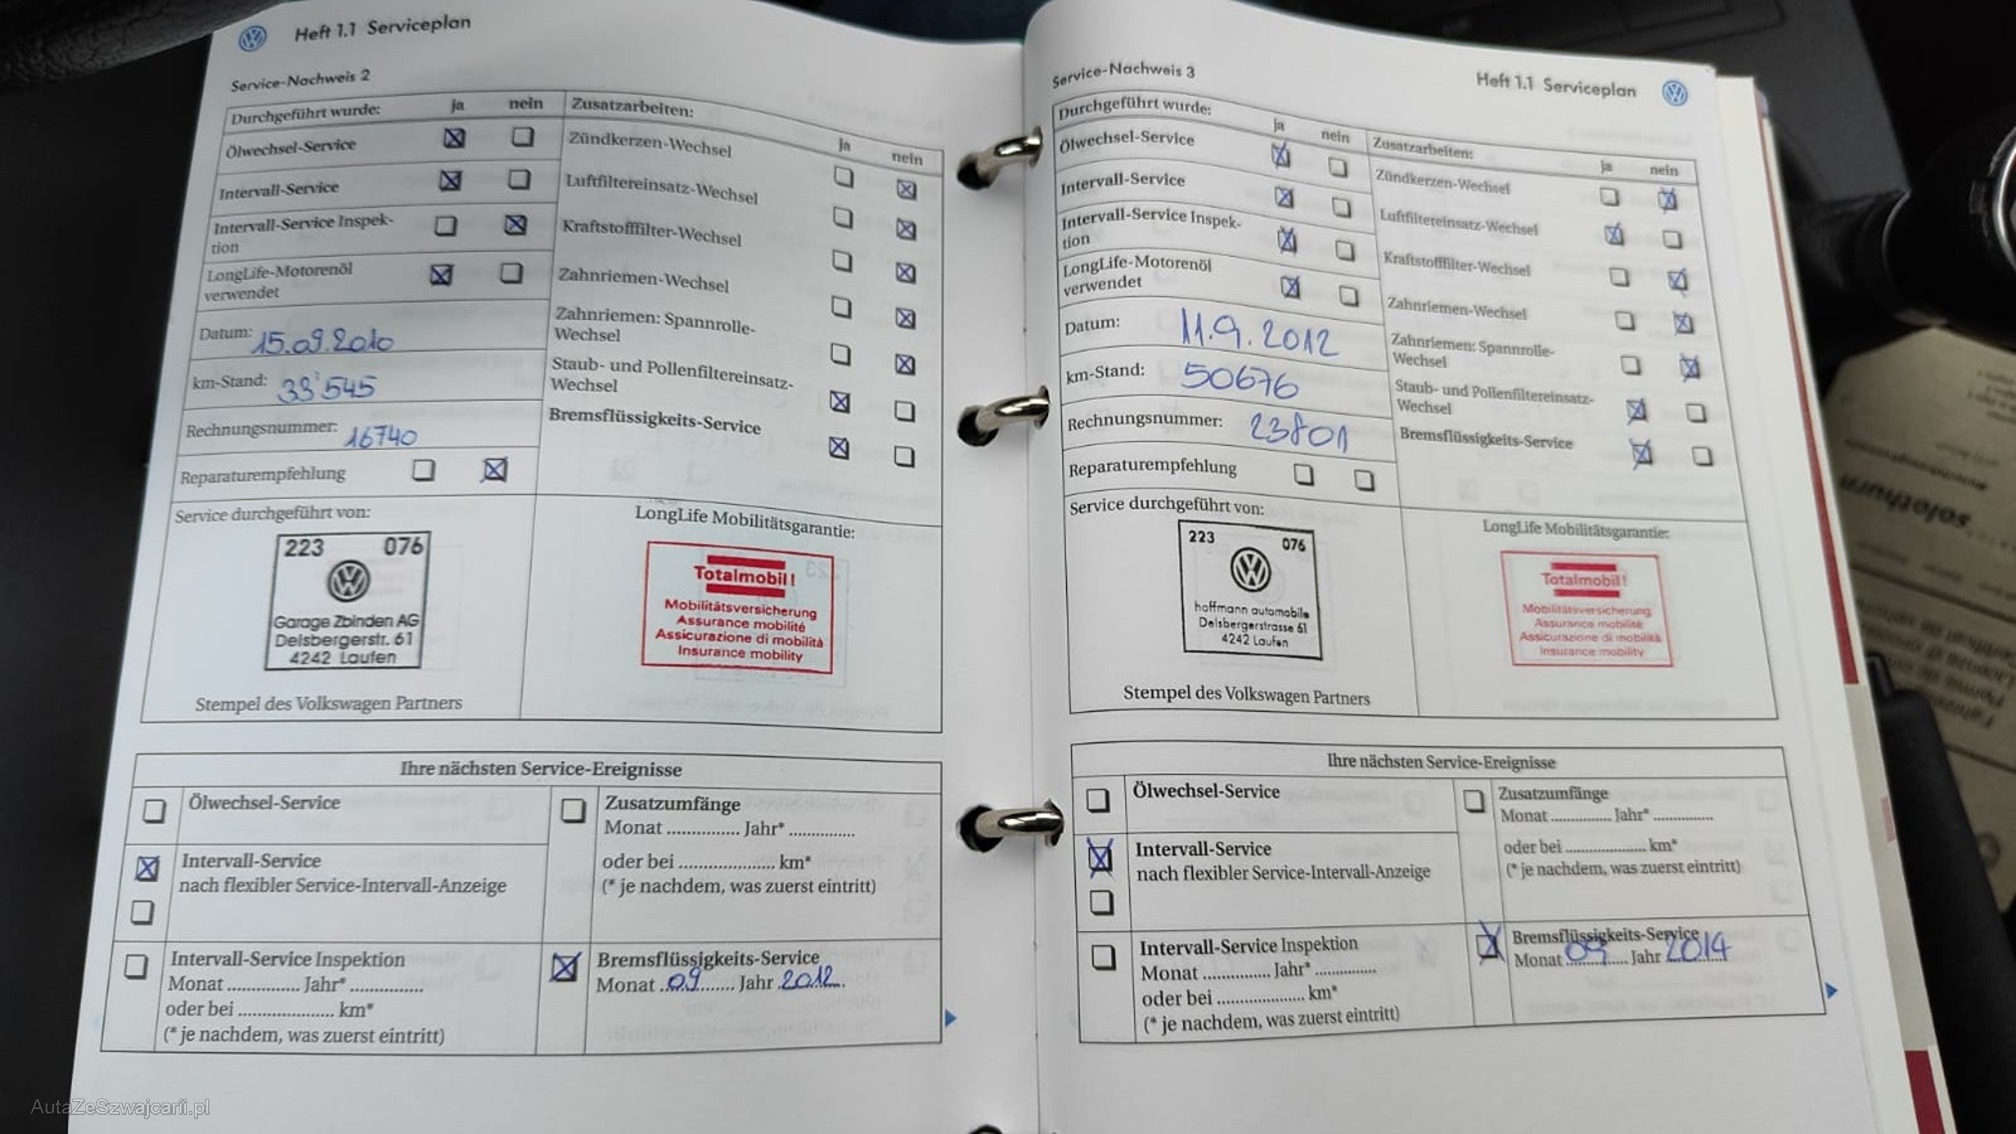 Heft 1.1 Serviceplan
Service-Nachweis 2
Durchgeführt wurde: ja nein
Ölwechsel-Service
Intervall-Service
Intervall-Service Inspek-
tion
LongLife-Motorenöl
verwendet
Datum: 15.09.2010
km-Stand: 33'545
Rechnungsnummer: 16740
Reparaturempfehlung
Zusatzarbeiten:
ja nein
Zündkerzen-Wechsel
Luftfiltereinsatz-Wechsel
Kraftstofffilter-Wechsel
Zahnriemen-Wechsel
Zahnriemen: Spannrolle-
Wechsel
Staub- und Pollenfiltereinsatz-
Wechsel
Bremsflüssigkeits-Service
Service durchgeführt von:
223 076
Garage Zbinden AG
Delsbergerstr. 61
4242 Laufen
Stempel des Volkswagen Partners
LongLife Mobilitätsgarantie:
Totalmobil!
Mobilitätsversicherung
Assurance mobilité
Assicurazione di mobilità
Insurance mobility
Ihre nächsten Service-Ereignisse
Ölwechsel-Service
Intervall-Service
nach flexibler Service-Intervall-Anzeige
Intervall-Service Inspektion
Monat ............... Jahr* ...............
oder bei .................... km*
(* je nachdem, was zuerst eintritt)
Zusatzumfänge
Monat ............... Jahr* ..............
oder bei .................... km*
(* je nachdem, was zuerst eintritt)
Bremsflüssigkeits-Service
Monat 09 Jahr 2012
Service-Nachweis 3
Heft 1.1 Serviceplan
Durchgeführt wurde: ja nein
Ölwechsel-Service
Intervall-Service
Intervall-Service Inspek-
tion
LongLife-Motorenöl
verwendet
Datum: 11.9.2012
km-Stand: 50676
Rechnungsnummer: 23801
Reparaturempfehlung
Zusatzarbeiten:
ja nein
Zündkerzen-Wechsel
Luftfiltereinsatz-Wechsel
Kraftstofffilter-Wechsel
Zahnriemen-Wechsel
Zahnriemen: Spannrolle-
Wechsel
Staub- und Pollenfiltereinsatz-
Wechsel
Bremsflüssigkeits-Service
Service durchgeführt von:
223 076
hoffmann automobile
Delsbergerstrasse 61
4242 Laufen
Stempel des Volkswagen Partners
LongLife Mobilitätsgarantie:
Totalmobil!
Mobilitätsversicherung
Assurance mobilité
Assicurazione di mobilità
Insurance mobility
Ihre nächsten Service-Ereignisse
Ölwechsel-Service
Intervall-Service
nach flexibler Service-Intervall-Anzeige
Intervall-Service Inspektion
Monat ............... Jahr* ..............
oder bei .................... km*
(* je nachdem, was zuerst eintritt)
Zusatzumfänge
Monat ............... Jahr* ..............
oder bei .................... km*
(* je nachdem, was zuerst eintritt)
Bremsflüssigkeits-Service
Monat 09 Jahr 2014
solothurn
AutaZeSzwajcarii.pl